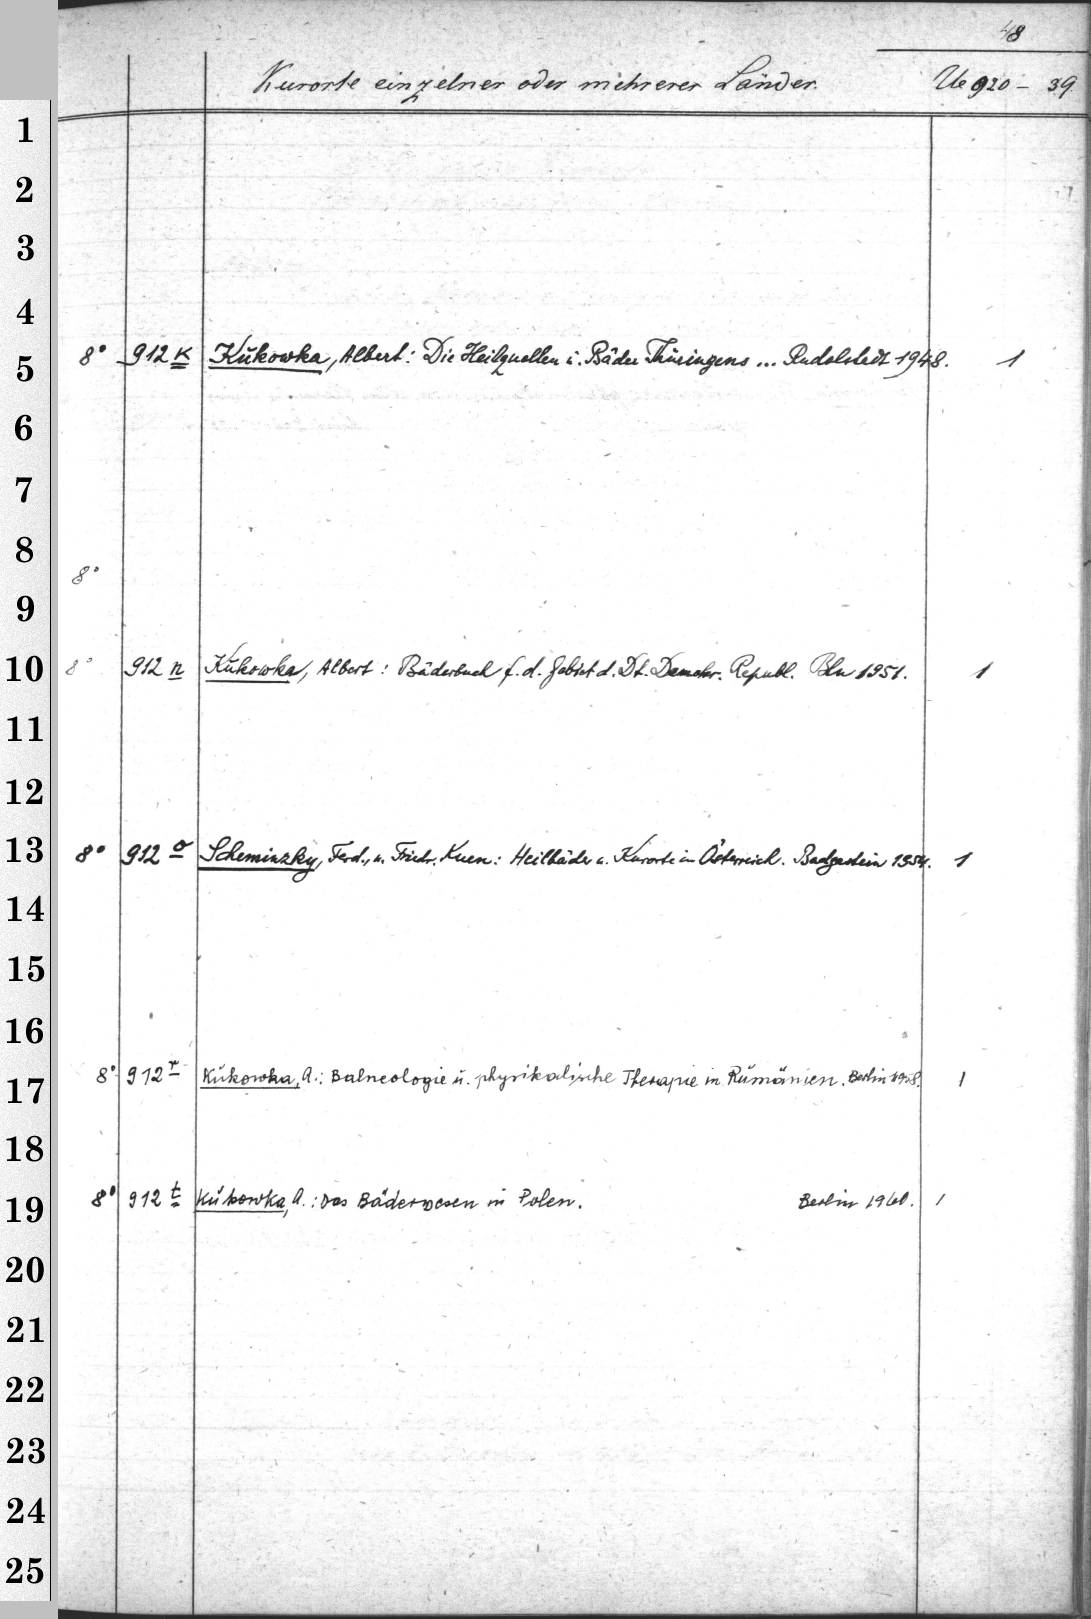 48
Kurorte einzelner oder mehrerer Länder. Ue 920 - 39
1
2
3
4
8° 912 k Kukowka, Albert: Die Heilquellen u. Bäder Thüringens ... Rudolstadt 1948. 1
5
6
7
8
8°
9
10 8° 912 n Kukowka, Albert: Bäderbuch f. d. Gebiet d. Dt. Demokr. Republ. Bln 1951. 1
11
12
13 8° 912 o Scheminzky, Ferd., u. Friedr. Kuen: Heilbäder u. Kurorte in Österreich. Badgastein 1954. 1
14
15
16
8° 912 r Kukowka, A.: Balneologie u. physikalische Therapie in Rumänien. Berlin 1958. 1
17
18
8° 912 t Kukowka, A.: Das Bäderwesen in Polen. Berlin 1960. 1
19
20
21
22
23
24
25